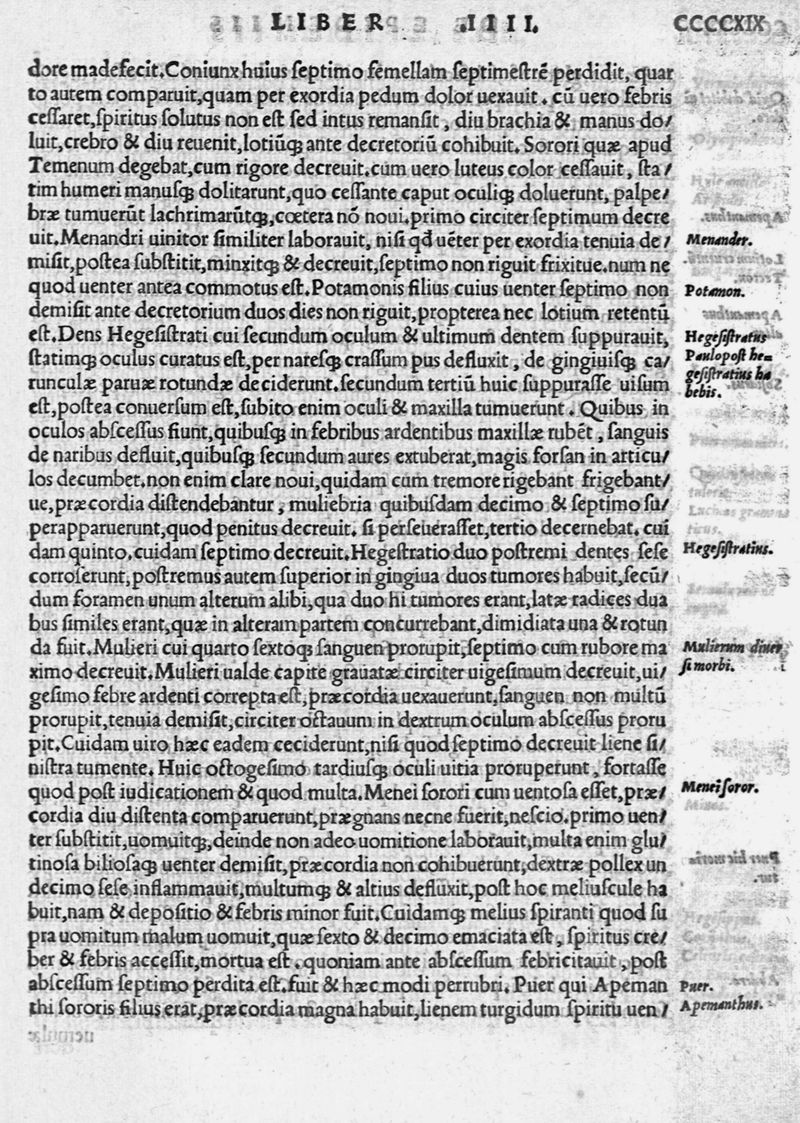 LIBER .IIII. CCCCXIX
dore madefecit. Coniunx huius ſeptimo femellam ſeptimeſtrē perdidit, quar
to autem comparuit, quam per exordia pedum dolor uexauit. cū uero febris
ceſſaret, ſpiritus ſolutus non eſt ſed intus remanſit, diu brachia & manus do/
luit, crebro & diu reuenit, lotiūq; ante decretoriū cohibuit. Sorori quæ apud
Temenum degebat, cum rigore decreuit. cum uero luteus color ceſſauit, ſta/
tim humeri manuſq; dolitarunt, quo ceſſante caput oculiq; doluerunt, palpe/
bræ tumuerūt lachrimarūtq;, cœtera nō noui. primo circiter ſeptimum decre
uit. Menandri uinitor ſimiliter laborauit, niſi qđ uēter per exordia tenuia de/
Menander.
miſit, poſtea ſubſtitit, minxitq; & decreuit, ſeptimo non riguit frixitue. num ne
quod uenter antea commotus eſt. Potamonis filius cuius uenter ſeptimo non
Potamon.
demiſit ante decretorium duos dies non riguit, propterea nec lotium retentū
eſt. Dens Hegeſiſtrati cui ſecundum oculum & ultimum dentem ſuppurauit,
Hegeſiſtratus
ſtatimq; oculus curatus eſt, per nareſq; craſſum pus defluxit, de gingiuiſq; ca/
Paulopoſt he=
runculæ paruæ rotundæ deciderunt. ſecundum tertiū huic ſuppuraſſe uiſum
geſiſtratius ha
eſt, poſtea conuerſum eſt, ſubito enim oculi & maxilla tumuerunt. Quibus in
bebis.
oculos abſceſſus fiunt, quibuſq; in febribus ardentibus maxillæ rubēt, ſanguis
de naribus defluit, quibuſq; ſecundum aures extuberat, magis forſan in articu/
los decumbet. non enim clare noui, quidam cum tremore rigebant frigebant/
ue, præcordia diſtendebantur, muliebria quibuſdam decimo & ſeptimo ſu/
perapparuerunt, quod penitus decreuit. ſi perſeueraſſet, tertio decernebat. cui
dam quinto, cuidam ſeptimo decreuit. Hegeſtratio duo poſtremi dentes ſeſe
Hegeſiſtratius.
corroſerunt, poſtremus autem ſuperior in gingiua duos tumores habuit, ſecū/
dum foramen unum alterum alibi, qua duo hi tumores erant, latæ radices dua
bus ſimiles erant, quæ in alteram partem concurrebant, dimidiata una & rotun
da fuit. Mulieri cui quarto ſextoq; ſanguen prorupit, ſeptimo cum rubore ma
Mulierum diuer
ximo decreuit. Mulieri ualde capite grauatæ circiter uigeſimum decreuit, ui/
ſi morbi.
geſimo febre ardenti correpta eſt, præcordia uexauerunt, ſanguen non multū
prorupit, tenuia demiſit, circiter octauum in dextrum oculum abſceſſus proru
pit. Cuidam uiro hæc eadem ceciderunt, niſi quod ſeptimo decreuit liene ſi/
niſtra tumente. Huic octogeſimo tardiuſq; oculi uitia proruperunt, fortaſſe
quod poſt iudicationem & quod multa. Menei ſorori cum uentoſa eſſet, præ/
Menei ſoror.
cordia diu diſtenta comparuerunt, prægnans necne fuerit, neſcio. primo uen/
ter ſubſtitit, uomuitq;, deinde non adeo uomitione laborauit, multa enim glu/
tinoſa bilioſaq; uenter demiſit, præcordia non cohibuerunt, dextræ pollex un
decimo ſeſe inflammauit, multumq; & altius defluxit, poſt hoc meliuſcule ha
buit, nam & depoſitio & febris minor fuit. Cuidamq; melius ſpiranti quod ſu
pra uomitum malum uomuit, quæ ſexto & decimo emaciata eſt, ſpiritus cre/
ber & febris acceſſit, mortua eſt. quoniam ante abſceſſum febricitauit, poſt
abſceſſum ſeptimo perdita eſt. fuit & hæc modi perrubri. Puer qui Apeman
Puer.
thi ſororis filius erat, præcordia magna habuit, lienem turgidum ſpiritu uen/
Apemanthus.